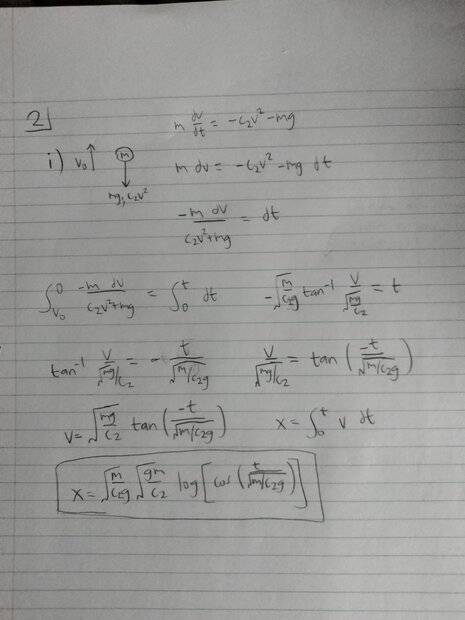 2)
m dv/dt = -c₂v² - mg
i) v₀ ↑ m m dv = -c₂v² - mg dt
mg, c₂v²
-m dv / c₂v² + mg = dt
∫_{v₀}^{0} -m dv / c₂v² + mg = ∫_0^t dt -√(m/c₂g) tan⁻¹ v/√(mg/c₂) = t
tan⁻¹ v/√(mg/c₂) = - t/√(m/c₂g) v/√(mg/c₂) = tan(-t/√(m/c₂g))
v = √(mg/c₂) tan(-t/√(m/c₂g)) x = ∫_0^t v dt
x = √(m/c₂g) √(gm/c₂) log[cos(t/√(m/c₂g))]